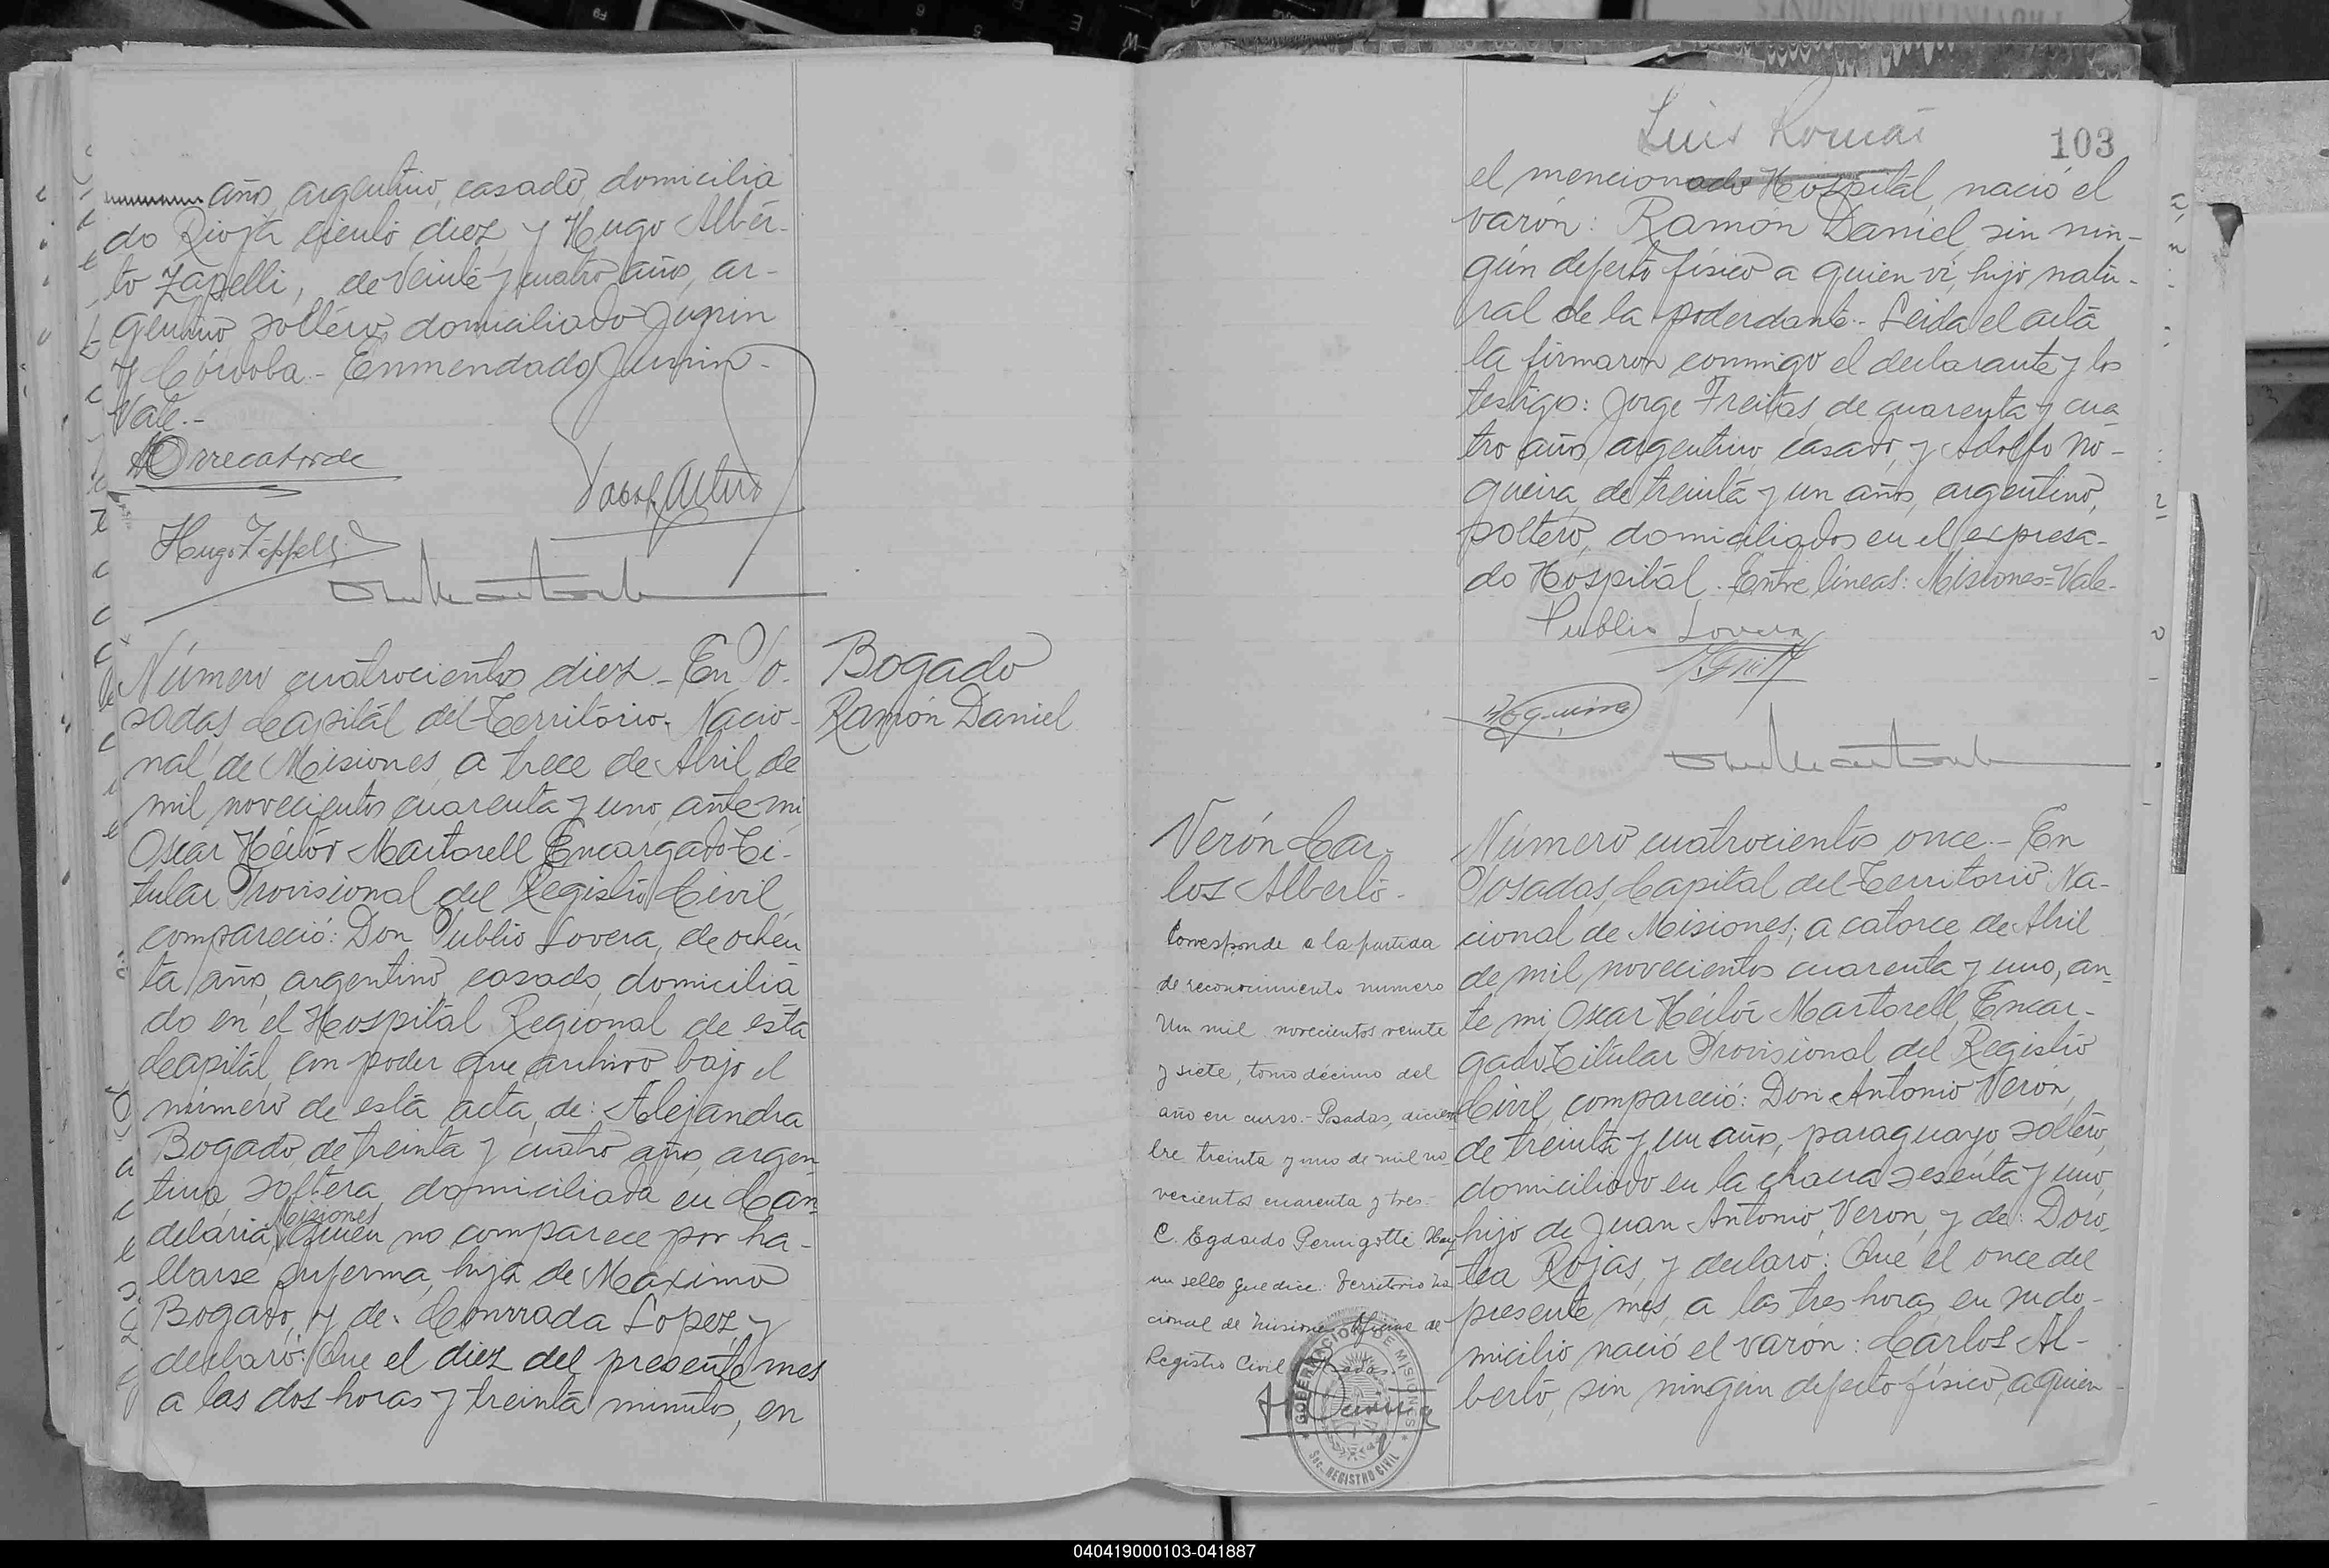 años, argentino, casado, domicilia
do Rioja ciento diez, y Hugo Alber-
to Zapelli, de veinte y cuatro años, ar-
gentino soltero, domiciliado Junin
y Córdoba.- Enmendado Junin-
Vale.-
Hugo Zappelli
Número cuatrocientos diez - En Po-
sadas, Capital del Territorio Nacio-
nal de Misiones, a trece de Abril de
mil novecientos cuarenta y uno, ante mi
Oscar Héctor Martorell Encargado Ti-
tular Provisional del Registro Civil,
compareció: Don Publio Lovera, de ochen
ta años, argentino, casado, domicilia
do en el Hospital Regional de esta
Capital, con poder que archivo bajo el
número de esta acta, de: Alejandra
Bogado, de treinta y cuatro años, argen
tina, soltera, domiciliada en Can-
Misiones
delaria, quien no comparece por ha-
llarse enferma, hija de Máximo
Bogado, y de Conrrada Lopez, y
declaró: Que el diez del presente mes
a las dos horas y treinta minutos, en
Bogado
Ramón Daniel
Luis Román
103
el mencionado Hospital, nació el
varón: Ramón Daniel, sin nin-
gún defecto físico a quien ví, hijo natu-
ral de la poderdante.- Leida el acta
la firmaron conmigo el declarante y los
testigos: Jorge Freitas, de cuarenta y cua
tro años, argentino, casado, y Adolfo No-
gueira, de treinta y un años, argentino,
soltero, domiciliados en el expresa-
do Hospital. Entre líneas: Misiones=Vale-
Publio Lovera
Verón Car-
los Alberto-
Corresponde a la partida
de reconocimiento numero
Un mil novecientos veinte
y siete, tomo décimo del
año en curso.- Posadas, diciem
bre treinta y uno de mil no
vecientos cuarenta y tres.
C. Egdardo Pernigotte Hay
un sello que dice: Territorio Na
cional de Misiones Oficina de
Registro Civil Posadas
GOBERNACION DE MISIONES
Sec. REGISTRO CIVIL
Número cuatrocientos once - En
Posadas, Capital del Territorio Na-
cional de Misiones; a catorce de Abril
de mil novecientos cuarenta y uno, an
te mi, Oscar Héctor Martorell, Encar-
gado Titular Provisional del Registro
Civil, compareció: Don Antonio Verón,
de treinta y un años, paraguayo, soltero,
domiciliado en la chacra sesenta y uno,
hijo de Juan Antonio Veron, y de: Doro-
tea Rojas, y declaró: Que el once del
presente mes, a las tres horas, en su do-
micilio nació el varón: Carlos Al-
berto, sin ningún defecto físico, a quien
040419000103-041887